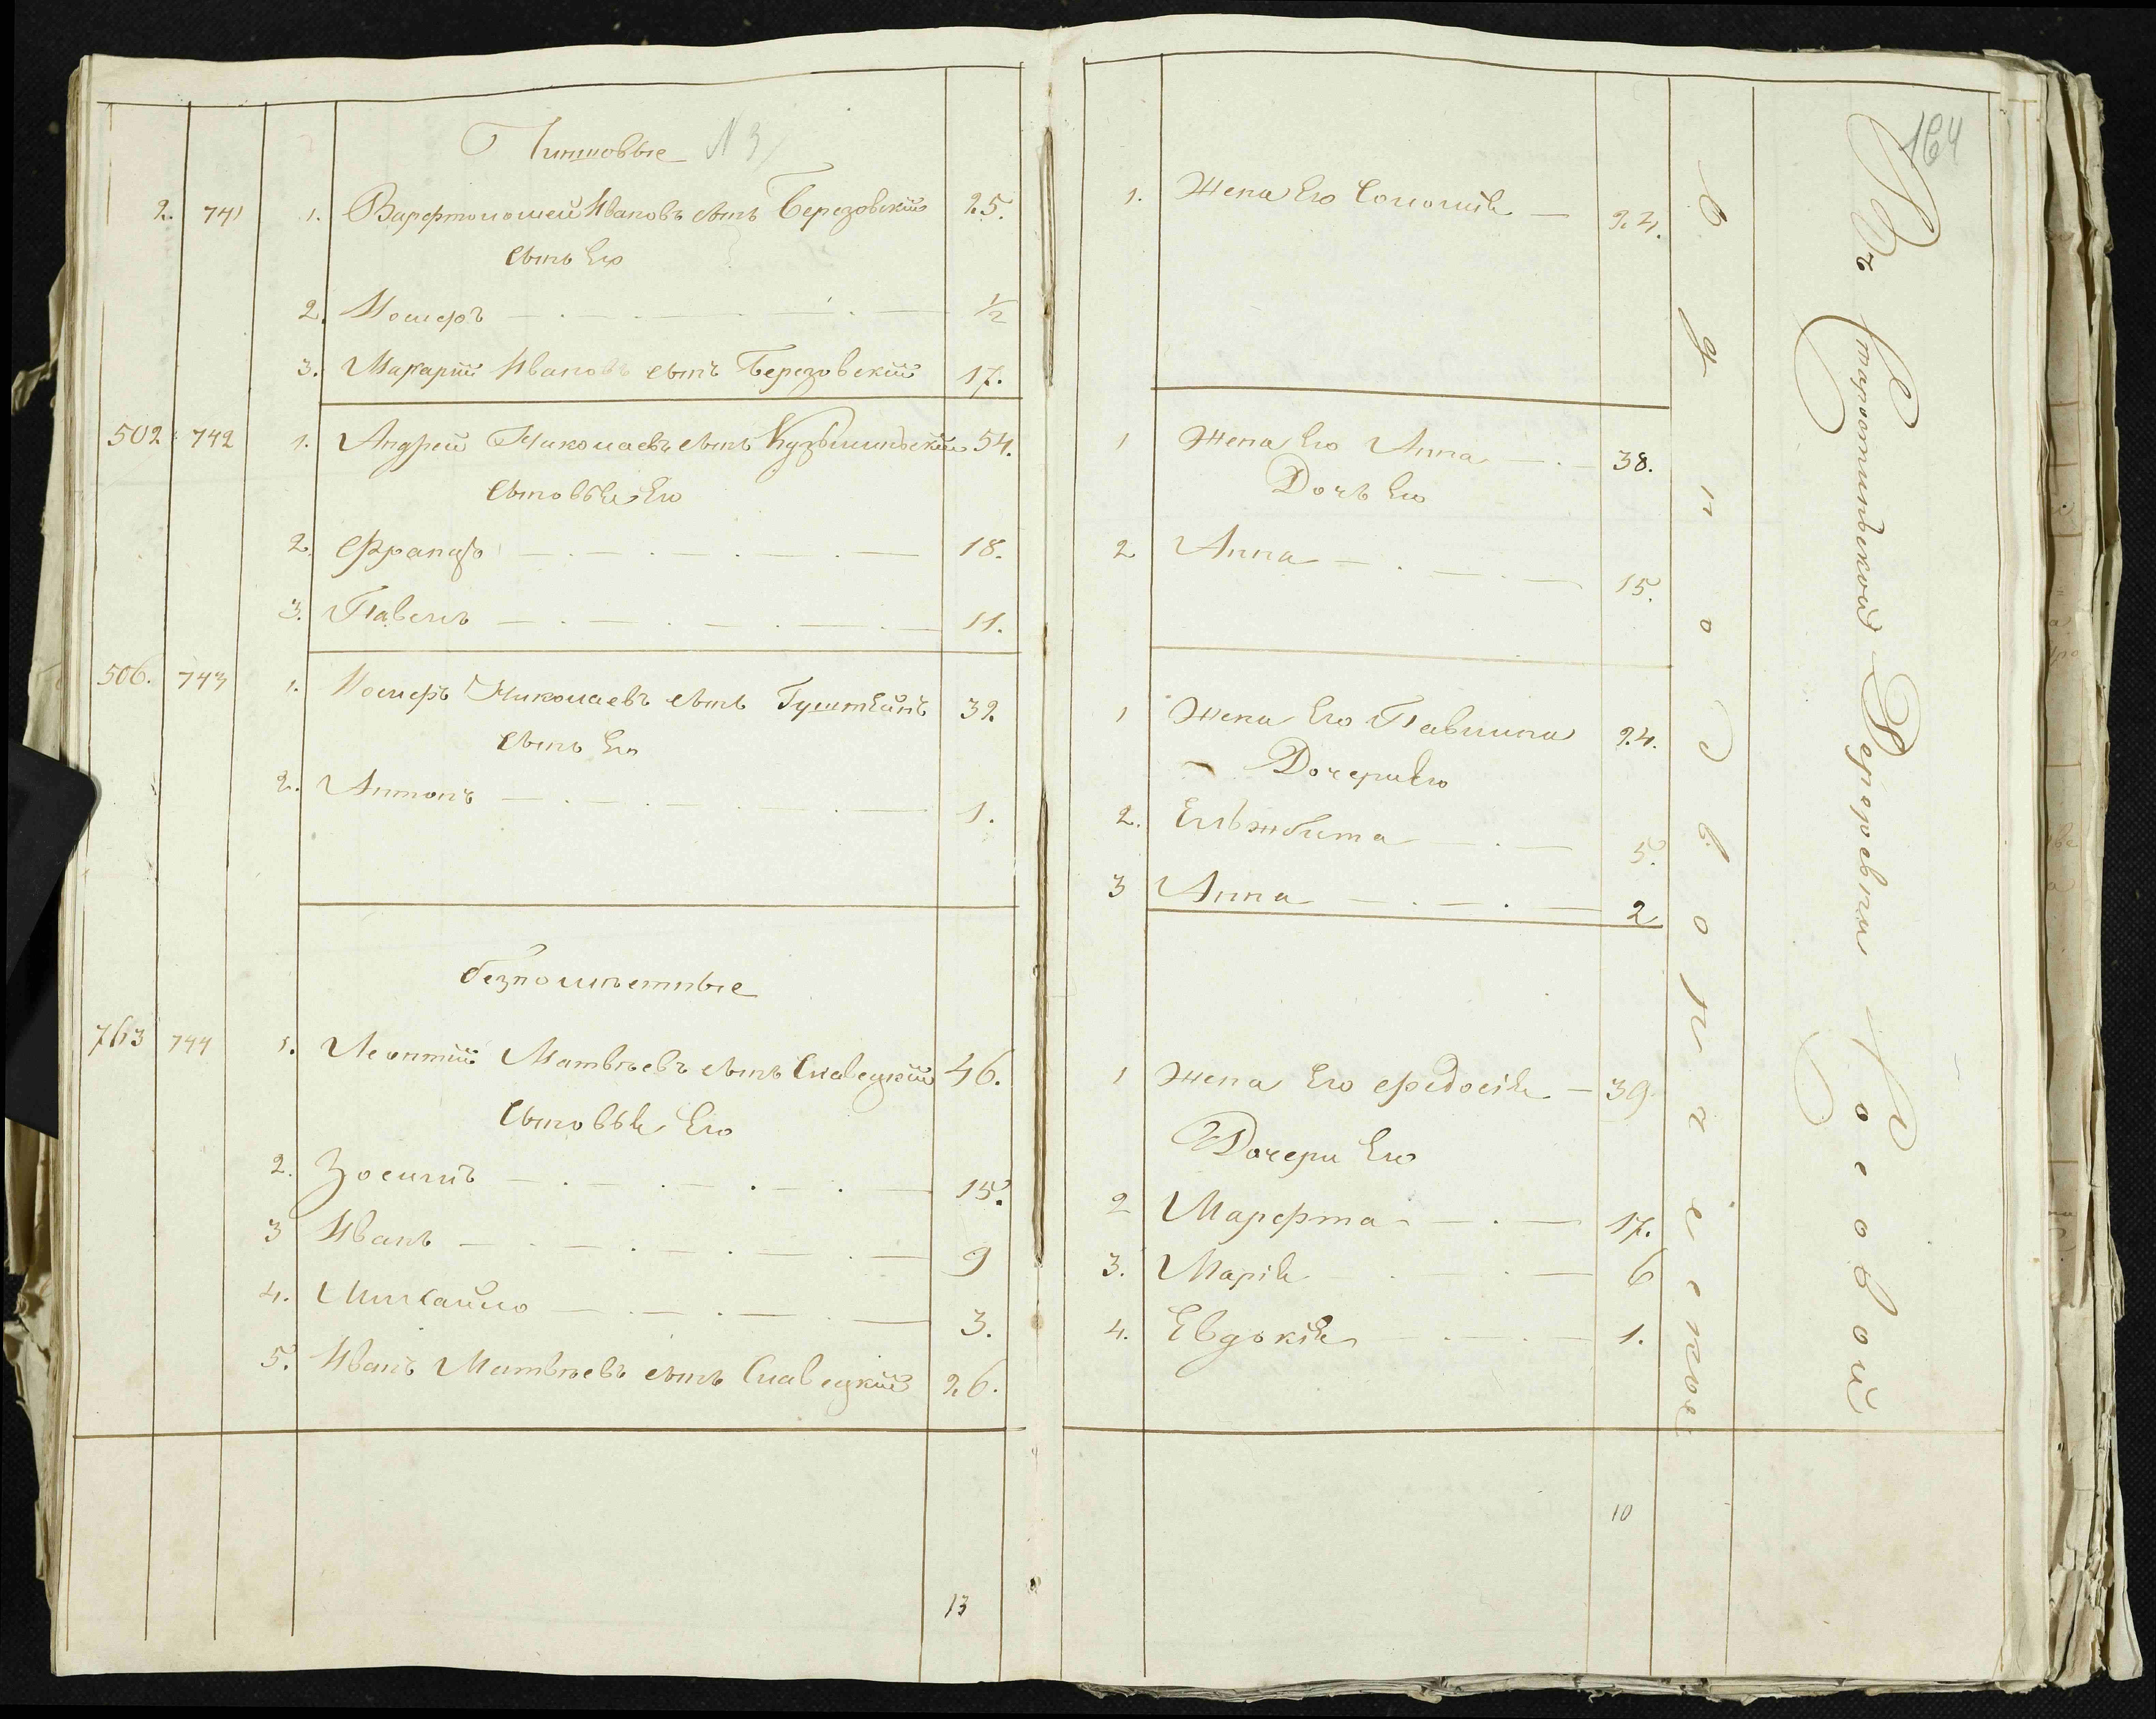 164
Чиншовые N 3
2. 741 1. Варфтоломей Ивановъ сынъ Березовский 25.
сынъ Его
2. Иосифъ ½
3. Макарий Ивановъ сынъ Березовский 17.
1. Жена Его Соломия 24.
502. 742 1. Андрей Николаевъ сынъ Кузьминьский 54.
сыновья Его
2. Францъ 18.
3. Павелъ 11.
1 Жена Его Анна 38.
Дочь Его
2 Анна 15.
506. 743 1. Иосифъ Николаевъ сынъ 32.
сынъ Его
2. Антонъ 1.
1 Жена Его Павлина 24.
Дочери Его
2. Ельжбита 5.
3 Анна 2
безпоместные
763 744 1. Леонтий Матвѣевъ сынъ Славецкий 46.
сыновья Его
2. Зосимъ 15.
3 Иванъ 9
4. Михайло 3.
5. Иванъ Матвѣевъ сынъ Славецкий 26.
1 Жена Его Федосія 39
Дочери Его
2 Марфта 17.
3. Марія 6
4. Евдокія 1.
13
10
Въ Старотиньской Деревни Чосовой